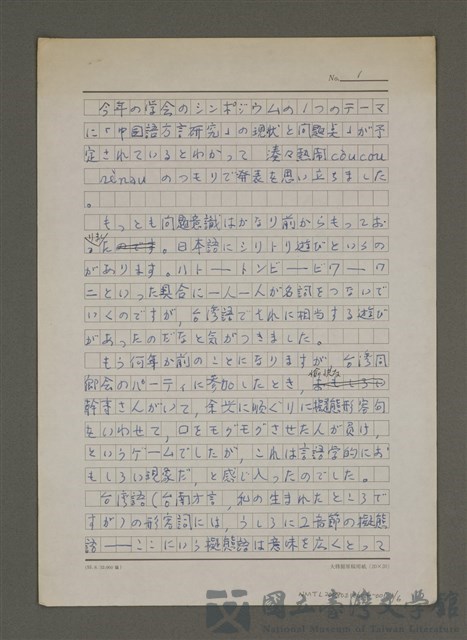 No. 1
今年の学会のシンポジウムの1つのテーマ
に「中国語方言研究」の現状と問題点」が予
定されているとわかって 湊々熱鬧còucou
rènau のつもりで発表を思い立ちました
。
もっとも問題意識はかなり前からもってお
りました。日本語にシリトリ遊びというの
があります。ハト——トンビ——ビワ——ワ
ニといった具合に一人一人が名詞をつないで
いくのですが,台湾語でそれに相当する遊び
があったのだなと気がつきました。
もう何年か前のことになりますが,台湾同
郷会のパーティに参加したとき,愉快な
幹事さんがいて,余興に順ぐりに擬態形容句
をいわせて,口をモグモグさせた人が負け,
というゲームでしたが,これは言語学的にお
もしろい現象だ,と感じ入ったのでした。
台湾語(台南方言,私の生まれたところで
すが)の形容詞には,うしろに2音節の擬態
語——ここにいう擬態語は意味を広くとって
國立臺灣文學館
National Museum of Taiwan Literature